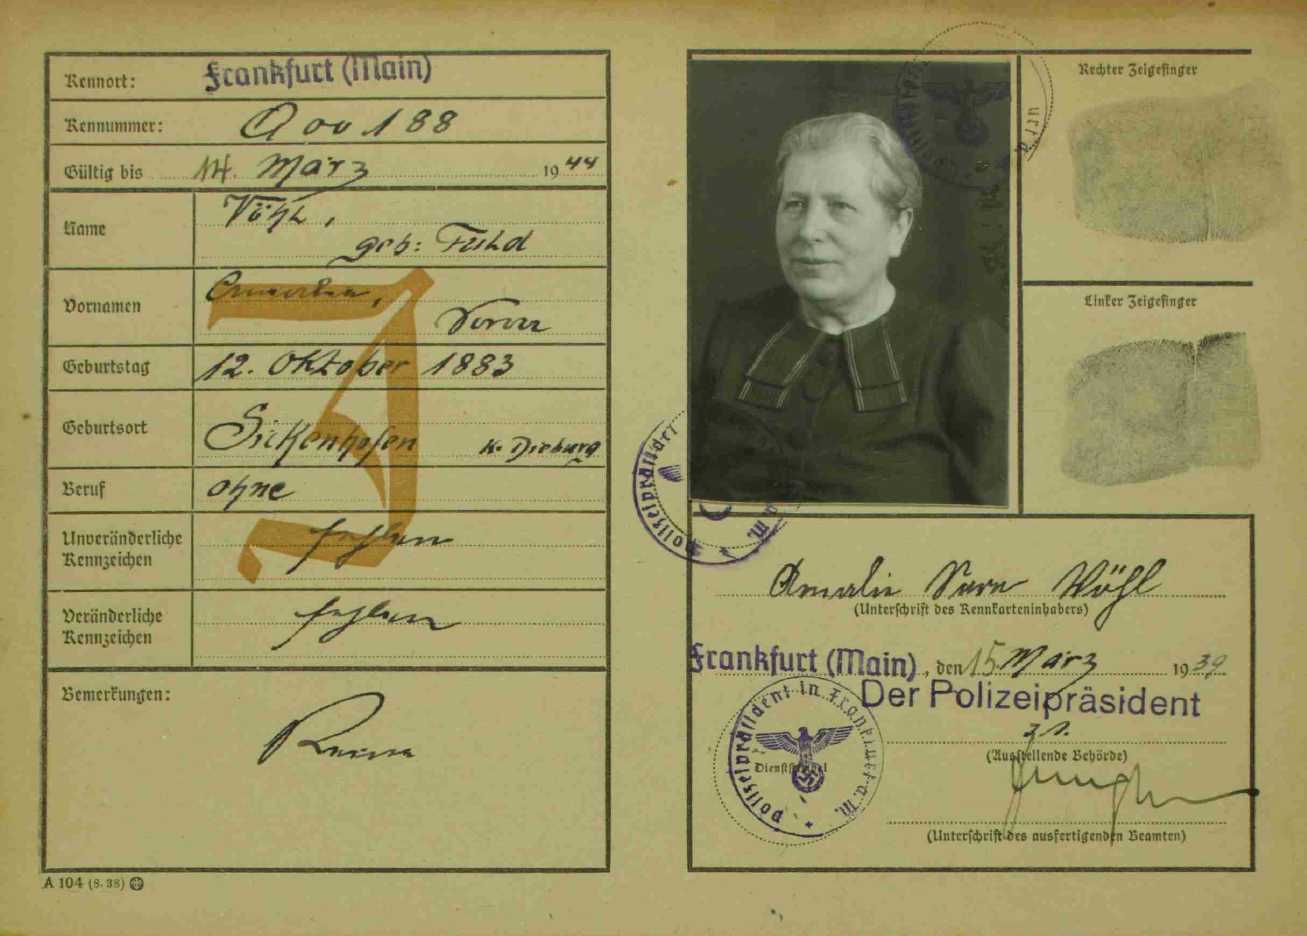 Kennort: Frankfurt (Main)
Kennummer: A 00188
Gültig bis 14. März 1944
Name Vöhl,
geb: Fuld
Vornamen Amalie,
Sara
Geburtstag 12. Oktober 1883
Geburtsort Sickenhofen K. Dieburg
Beruf ohne
Unveränderliche
Kennzeichen fehlen
Veränderliche
Kennzeichen fehlen
Bemerkungen: Keine
J
A 104 (8. 38)
Rechter Zeigefinger
Linker Zeigefinger
Polizeipräsident
a. M.
Amalie Sara Vöhl
(Unterschrift des Kennkarteninhabers)
Frankfurt (Main), den 15. März 1939
Der Polizeipräsident
(Ausstellende Behörde)
Polizeipräsident in Frankfurt a. M.
Dienststempel
(Unterschrift des ausfertigenden Beamten)